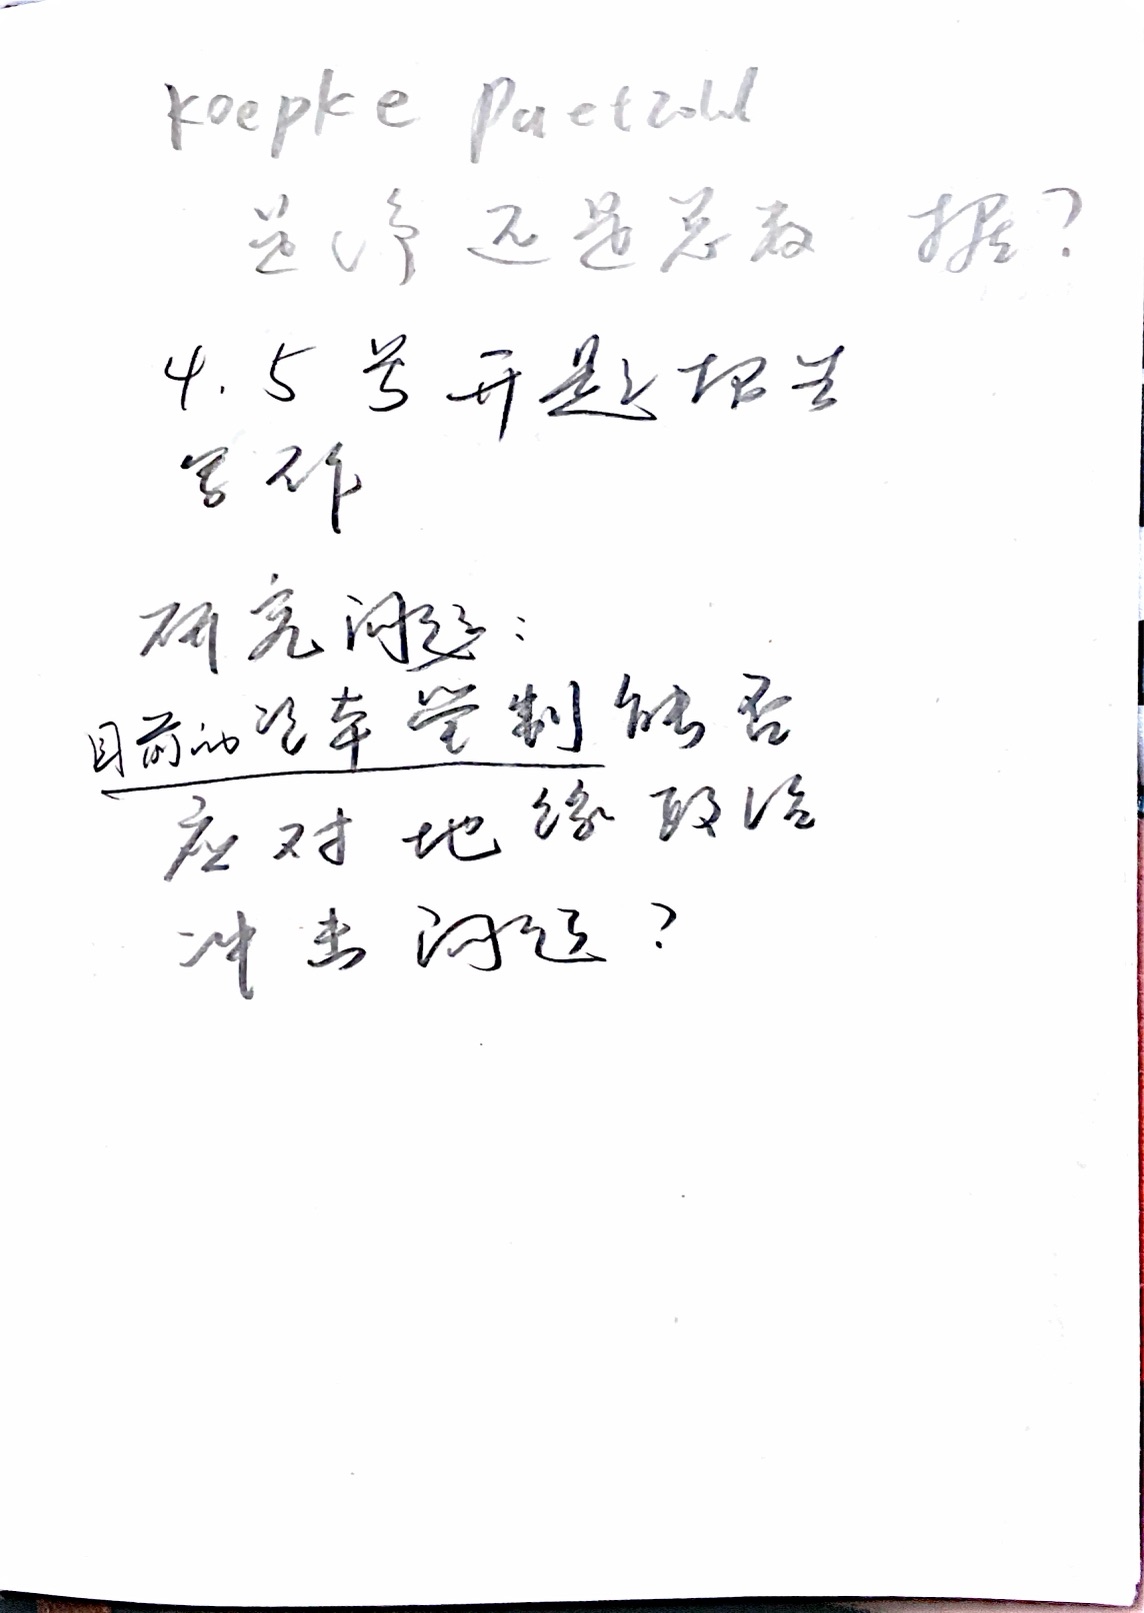 Koepke Paetzold
是净还是总数据?
4.5号开题报告
写作
研究问题:
目前的资本管制能否
应对地缘政治
冲击问题?